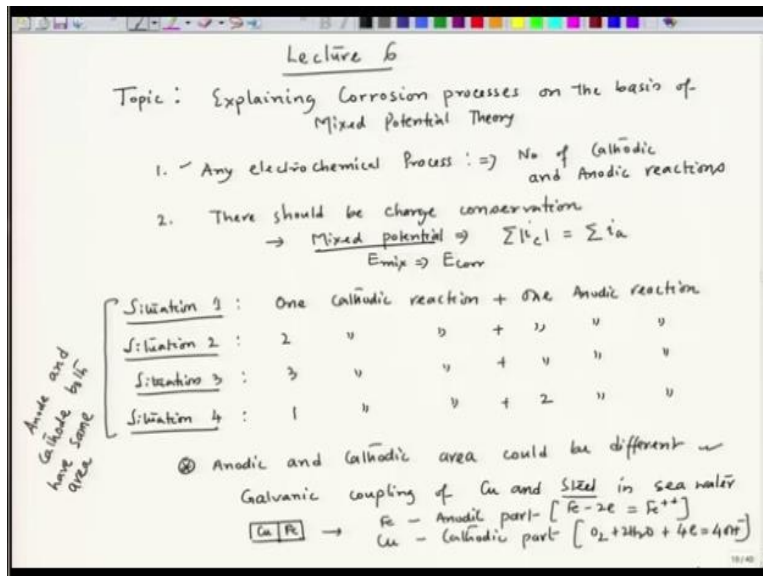 Lecture 6
Topic : Explaining Corrosion processes on the basis of
Mixed Potential Theory
1. - Any electrochemical Process : => No of Cathodic
and Anodic reactions
2. There should be charge conservation
→ Mixed potential => Σ|i_c| = Σ i_a
Emix => Ecorr
Situation 1 : One Cathodic reaction + One Anodic reaction
Situation 2 : 2 " " + " " "
Situation 3 : 3 " " + " " "
Situation 4 : 1 " " + 2 " "
Anode and
Cathode both
have same
area
⊗ Anodic and Cathodic area could be different
Galvanic coupling of Cu and Steel in sea water
Cu | Fe → Fe - Anodic part - [Fe - 2e = Fe++]
Cu - Cathodic part [O2 + 2H2O + 4e = 4OH-]
18/40